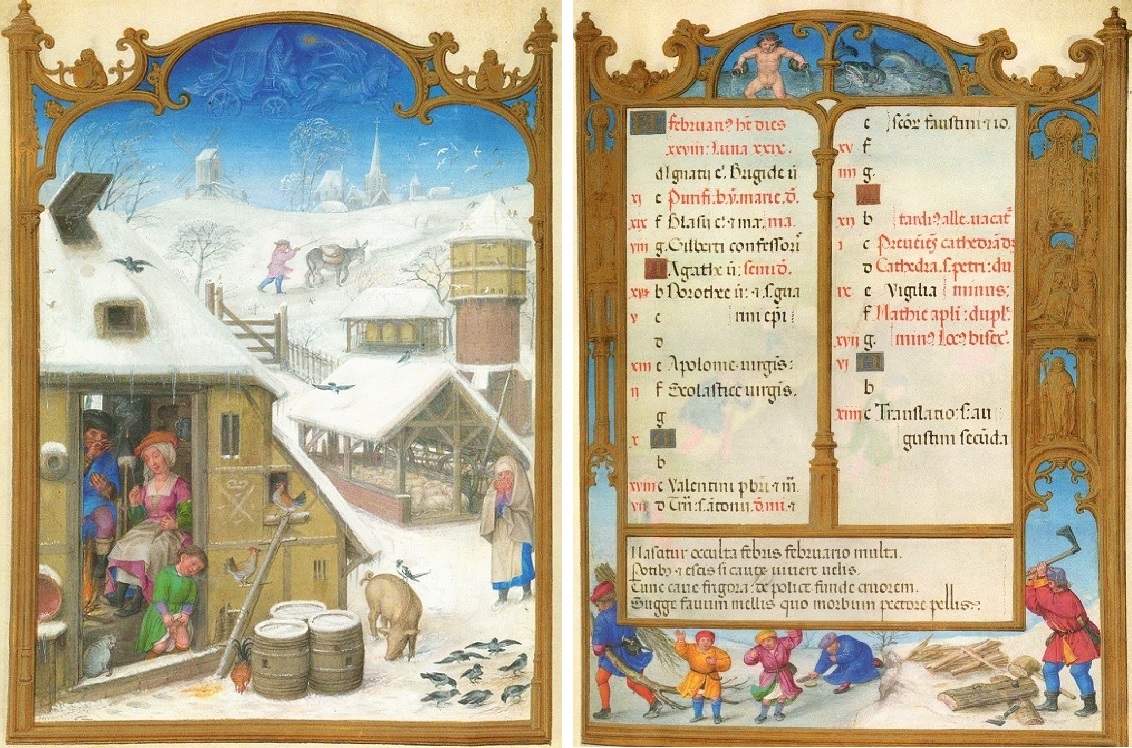 februari⁹ ht dies
xxviii: Luna xxix.
d Ignatij e. Brigide v̄
xi e Purifi. b. v̄. marie. d.
xix f Blasij
viii g. Gilberti confessoris
Agathe v̄: semi d.
xvi b Dorothee v̄:
v c nini epi
d
xiii e Apolonie virgis:
ii f Scolastice virgis.
g
x
b
xviii c Valentini pbri
vii d
c scōr faustini ⁊ io.
xv f
iiii g.
xii b tardi⁹ alle. vacat
i c cathedra
d Cathedra. s. petri: du
ix e Vigilia minus:
f Mathie apli: dupl:
xvii g. bisex.
vi
b
xiiii c Translatio s: au
gustini secūda
Nascitur occulta febris februario multi.
Potibꝰ ⁊ escis si caute vivere velis.
Tunc cave frigora: de pollice funde cruorem.
Sugge favum mellis quo morbum pectore pellis: